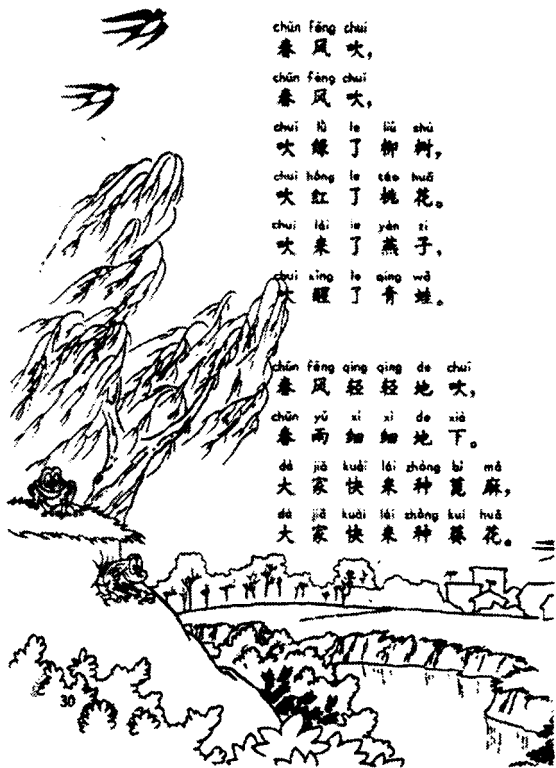 chūn fēng chuī
春 风 吹，
chūn fēng chuī
春 风 吹，
chuī lǜ le liǔ shù
吹 绿 了 柳 树，
chuī hóng le táo huā
吹 红 了 桃 花。
chuī lái le yàn zi
吹 来 了 燕 子，
chuī xǐng le qīng wā
吹 醒 了 青 蛙。
chūn fēng qīng qīng de chuī
春 风 轻 轻 地 吹，
chūn yǔ xì xì de xià
春 雨 细 细 地 下。
dà jiā kuài lái zhòng bì má
大 家 快 来 种 蓖 麻，
dà jiā kuài lái zhòng kuí huā
大 家 快 来 种 葵 花。
30